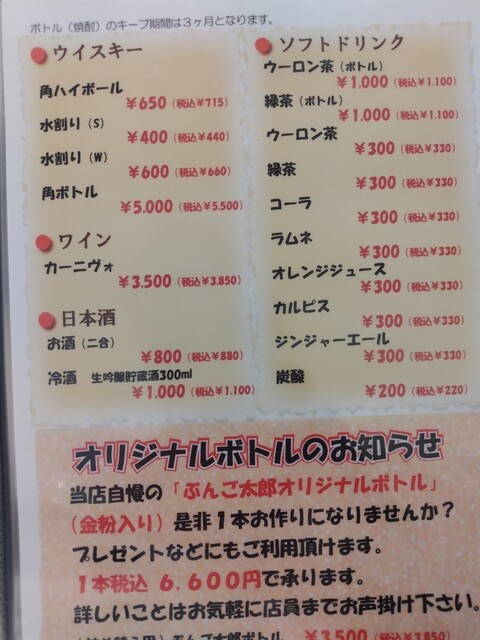 ボトル（焼酎）のキープ期間は３ヶ月となります。
ウイスキー
角ハイボール
￥650（税込￥715）
水割り（S）
￥400（税込￥440）
水割り（W）
￥600（税込￥660）
角ボトル
￥5.000（税込￥5.500）
ワイン
カーニヴォ
￥3.500（税込￥3.850）
日本酒
お酒（二合）
￥800（税込￥880）
冷酒 生吟醸貯蔵酒300ml
￥1.000（税込￥1.100）
ソフトドリンク
ウーロン茶（ボトル）
￥1.000（税込￥1.100）
緑茶（ボトル）
￥1.000（税込￥1.100）
ウーロン茶
￥300（税込￥330）
緑茶
￥300（税込￥330）
コーラ
￥300（税込￥330）
ラムネ
￥300（税込￥330）
オレンジジュース
￥300（税込￥330）
カルピス
￥300（税込￥330）
ジンジャーエール
￥300（税込￥330）
炭酸
￥200（税込￥220）
オリジナルボトルのお知らせ
当店自慢の「ぶんご太郎オリジナルボトル」
（金粉入り）是非１本お作りになりませんか？
プレゼントなどにもご利用頂けます。
１本税込 ６.６００円で承ります。
詳しいことはお気軽に店員までお声掛け下さい。
ぶんご太郎ボトル ￥3.500（税込￥3.850）